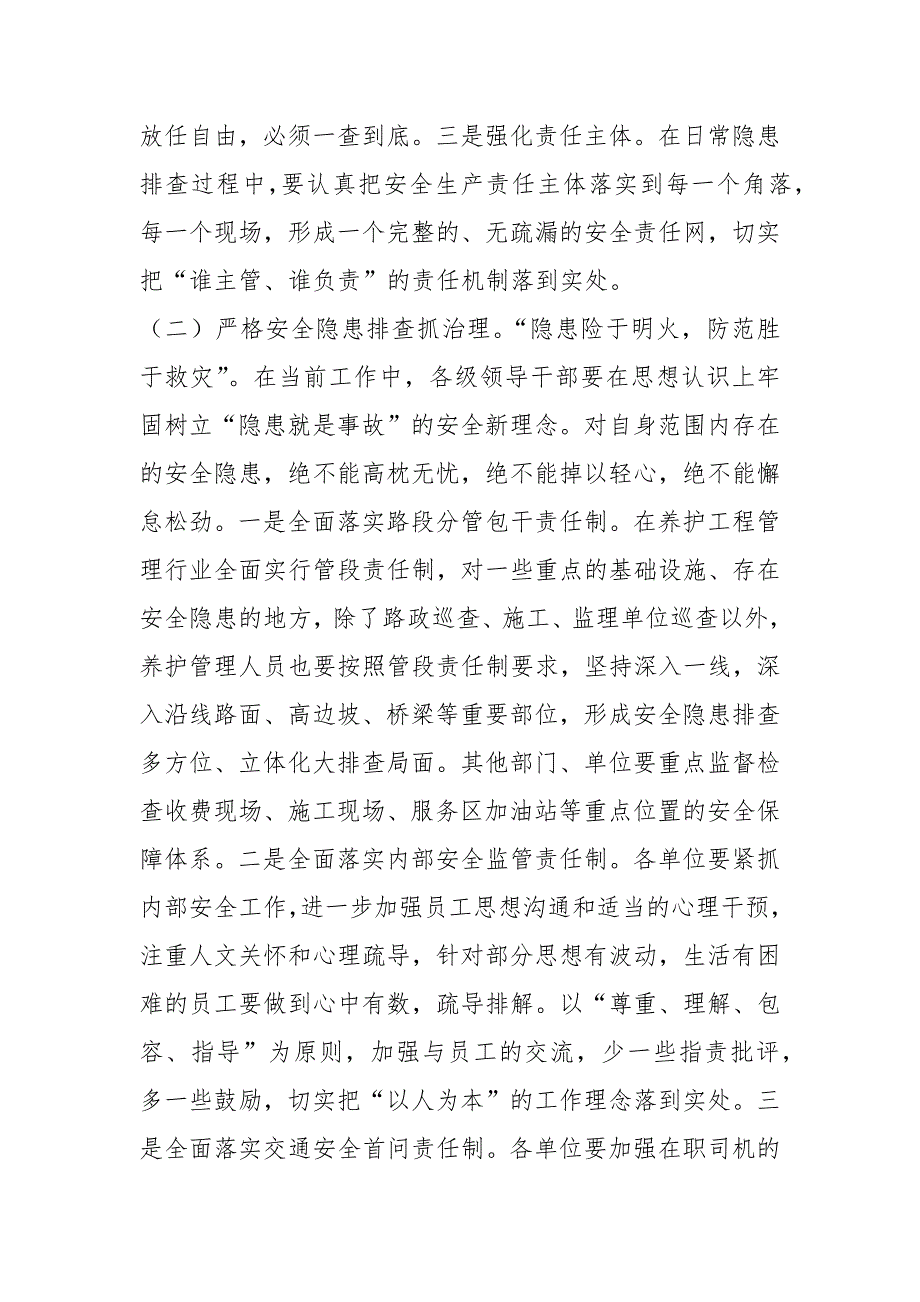 放任自由，必须一查到底。三是强化责任主体。在日常隐患
排查过程中，要认真把安全生产责任主体落实到每一个角落，
每一个现场，形成一个完整的、无疏漏的安全责任网，切实
把“谁主管、谁负责”的责任机制落到实处。
（二）严格安全隐患排查抓治理。“隐患险于明火，防范胜
于救灾”。在当前工作中，各级领导干部要在思想认识上牢
固树立“隐患就是事故”的安全新理念。对自身范围内存在
的安全隐患，绝不能高枕无忧，绝不能掉以轻心，绝不能懈
怠松劲。一是全面落实路段分管包干责任制。在养护工程管
理行业全面实行管段责任制，对一些重点的基础设施、存在
安全隐患的地方，除了路政巡查、施工、监理单位巡查以外，
养护管理人员也要按照管段责任制要求，坚持深入一线，深
入沿线路面、高边坡、桥梁等重要部位，形成安全隐患排查
多方位、立体化大排查局面。其他部门、单位要重点监督检
查收费现场、施工现场、服务区加油站等重点位置的安全保
障体系。二是全面落实内部安全监管责任制。各单位要紧抓
内部安全工作，进一步加强员工思想沟通和适当的心理干预，
注重人文关怀和心理疏导，针对部分思想有波动，生活有困
难的员工要做到心中有数，疏导排解。以“尊重、理解、包
容、指导”为原则，加强与员工的交流，少一些指责批评，
多一些鼓励，切实把“以人为本”的工作理念落到实处。三
是全面落实交通安全首问责任制。各单位要加强在职司机的